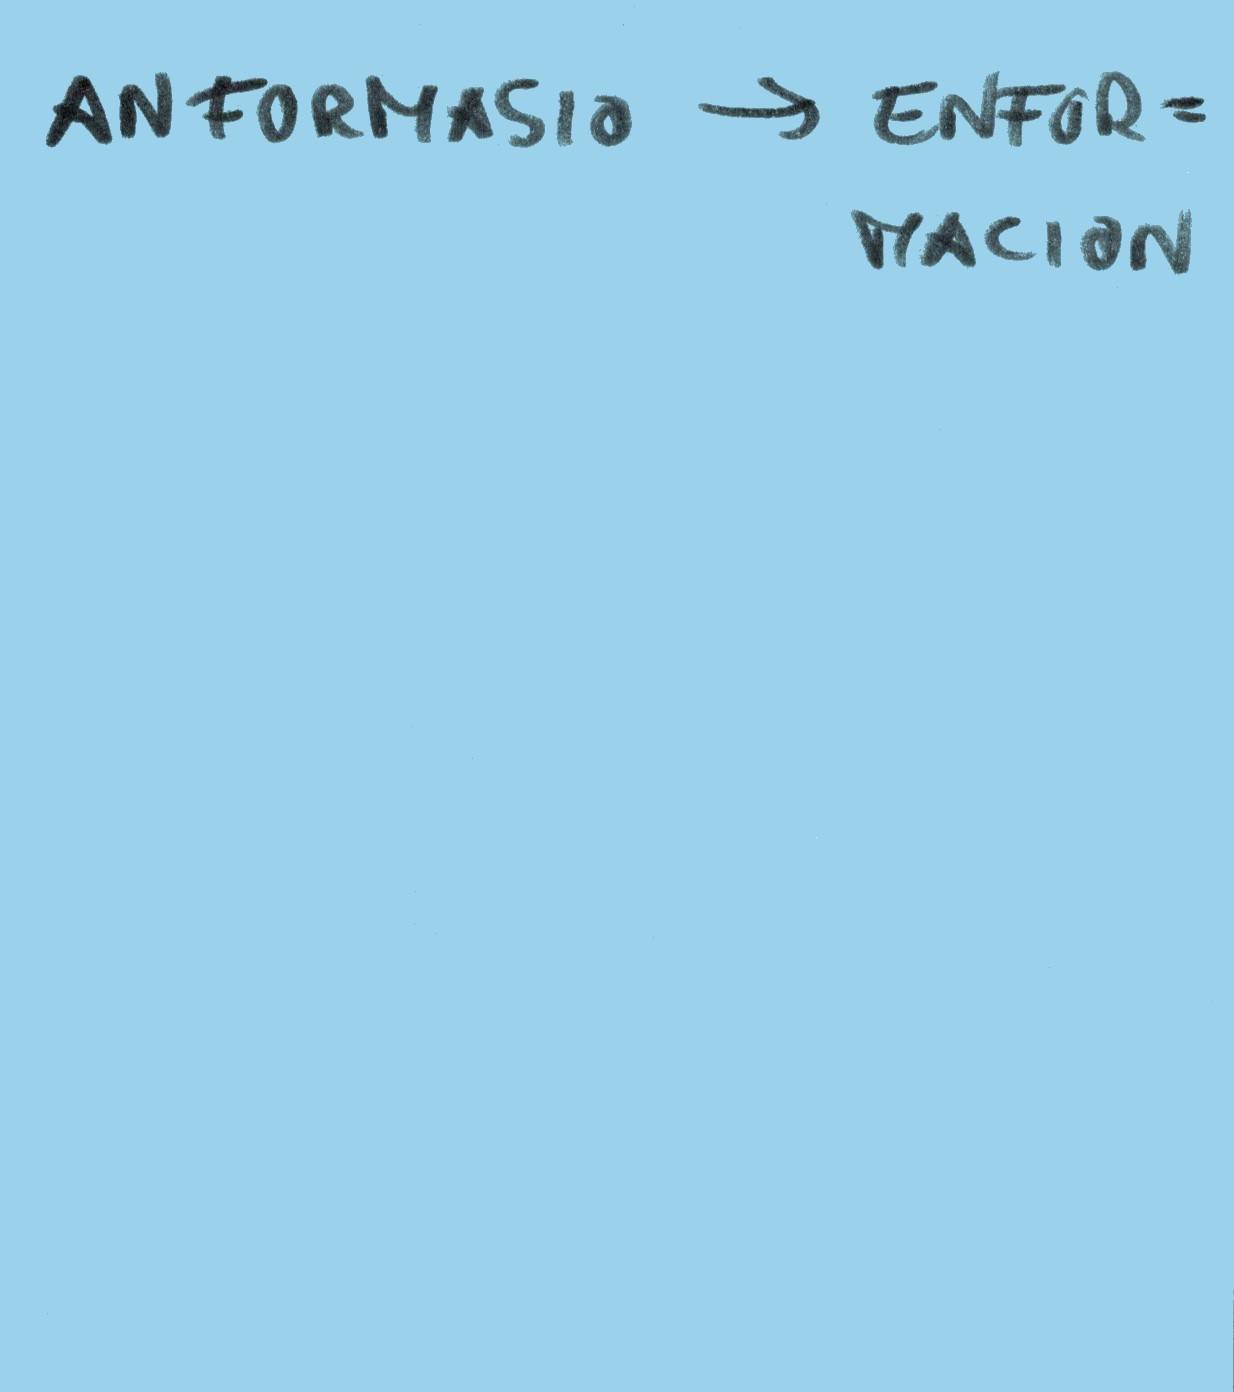 ANFORMASIO → ENFOR=
MACION